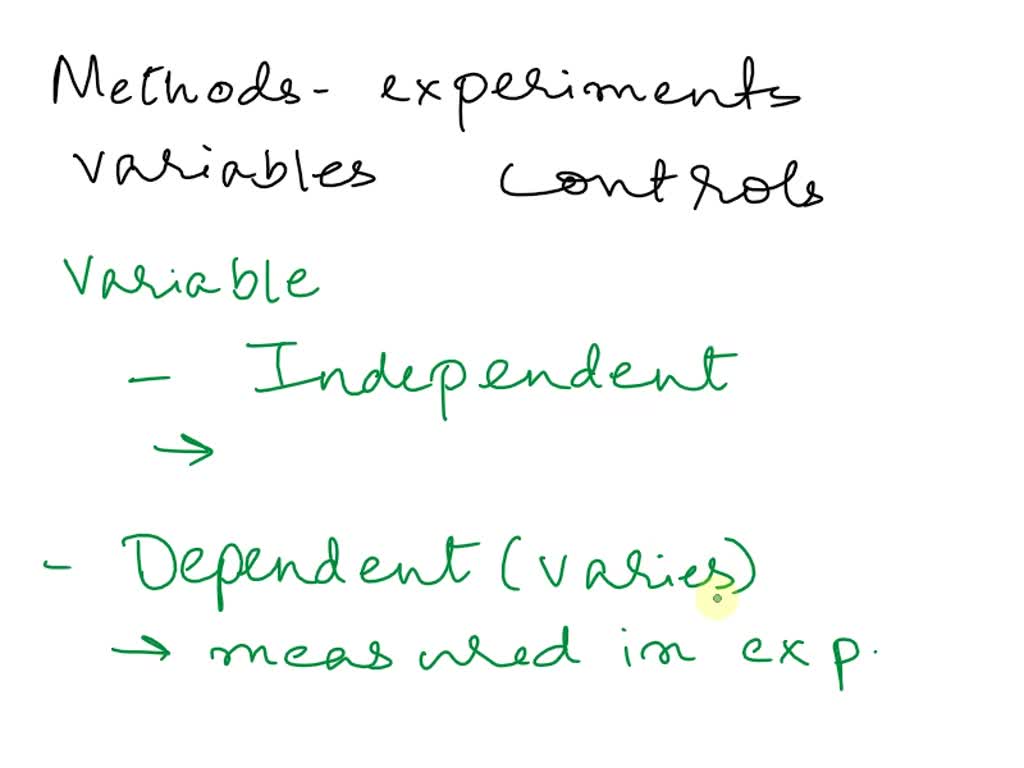 Methods- experiments
variables controls
Variable
- Independent
→
- Dependent (varies)
→ measured in exp.